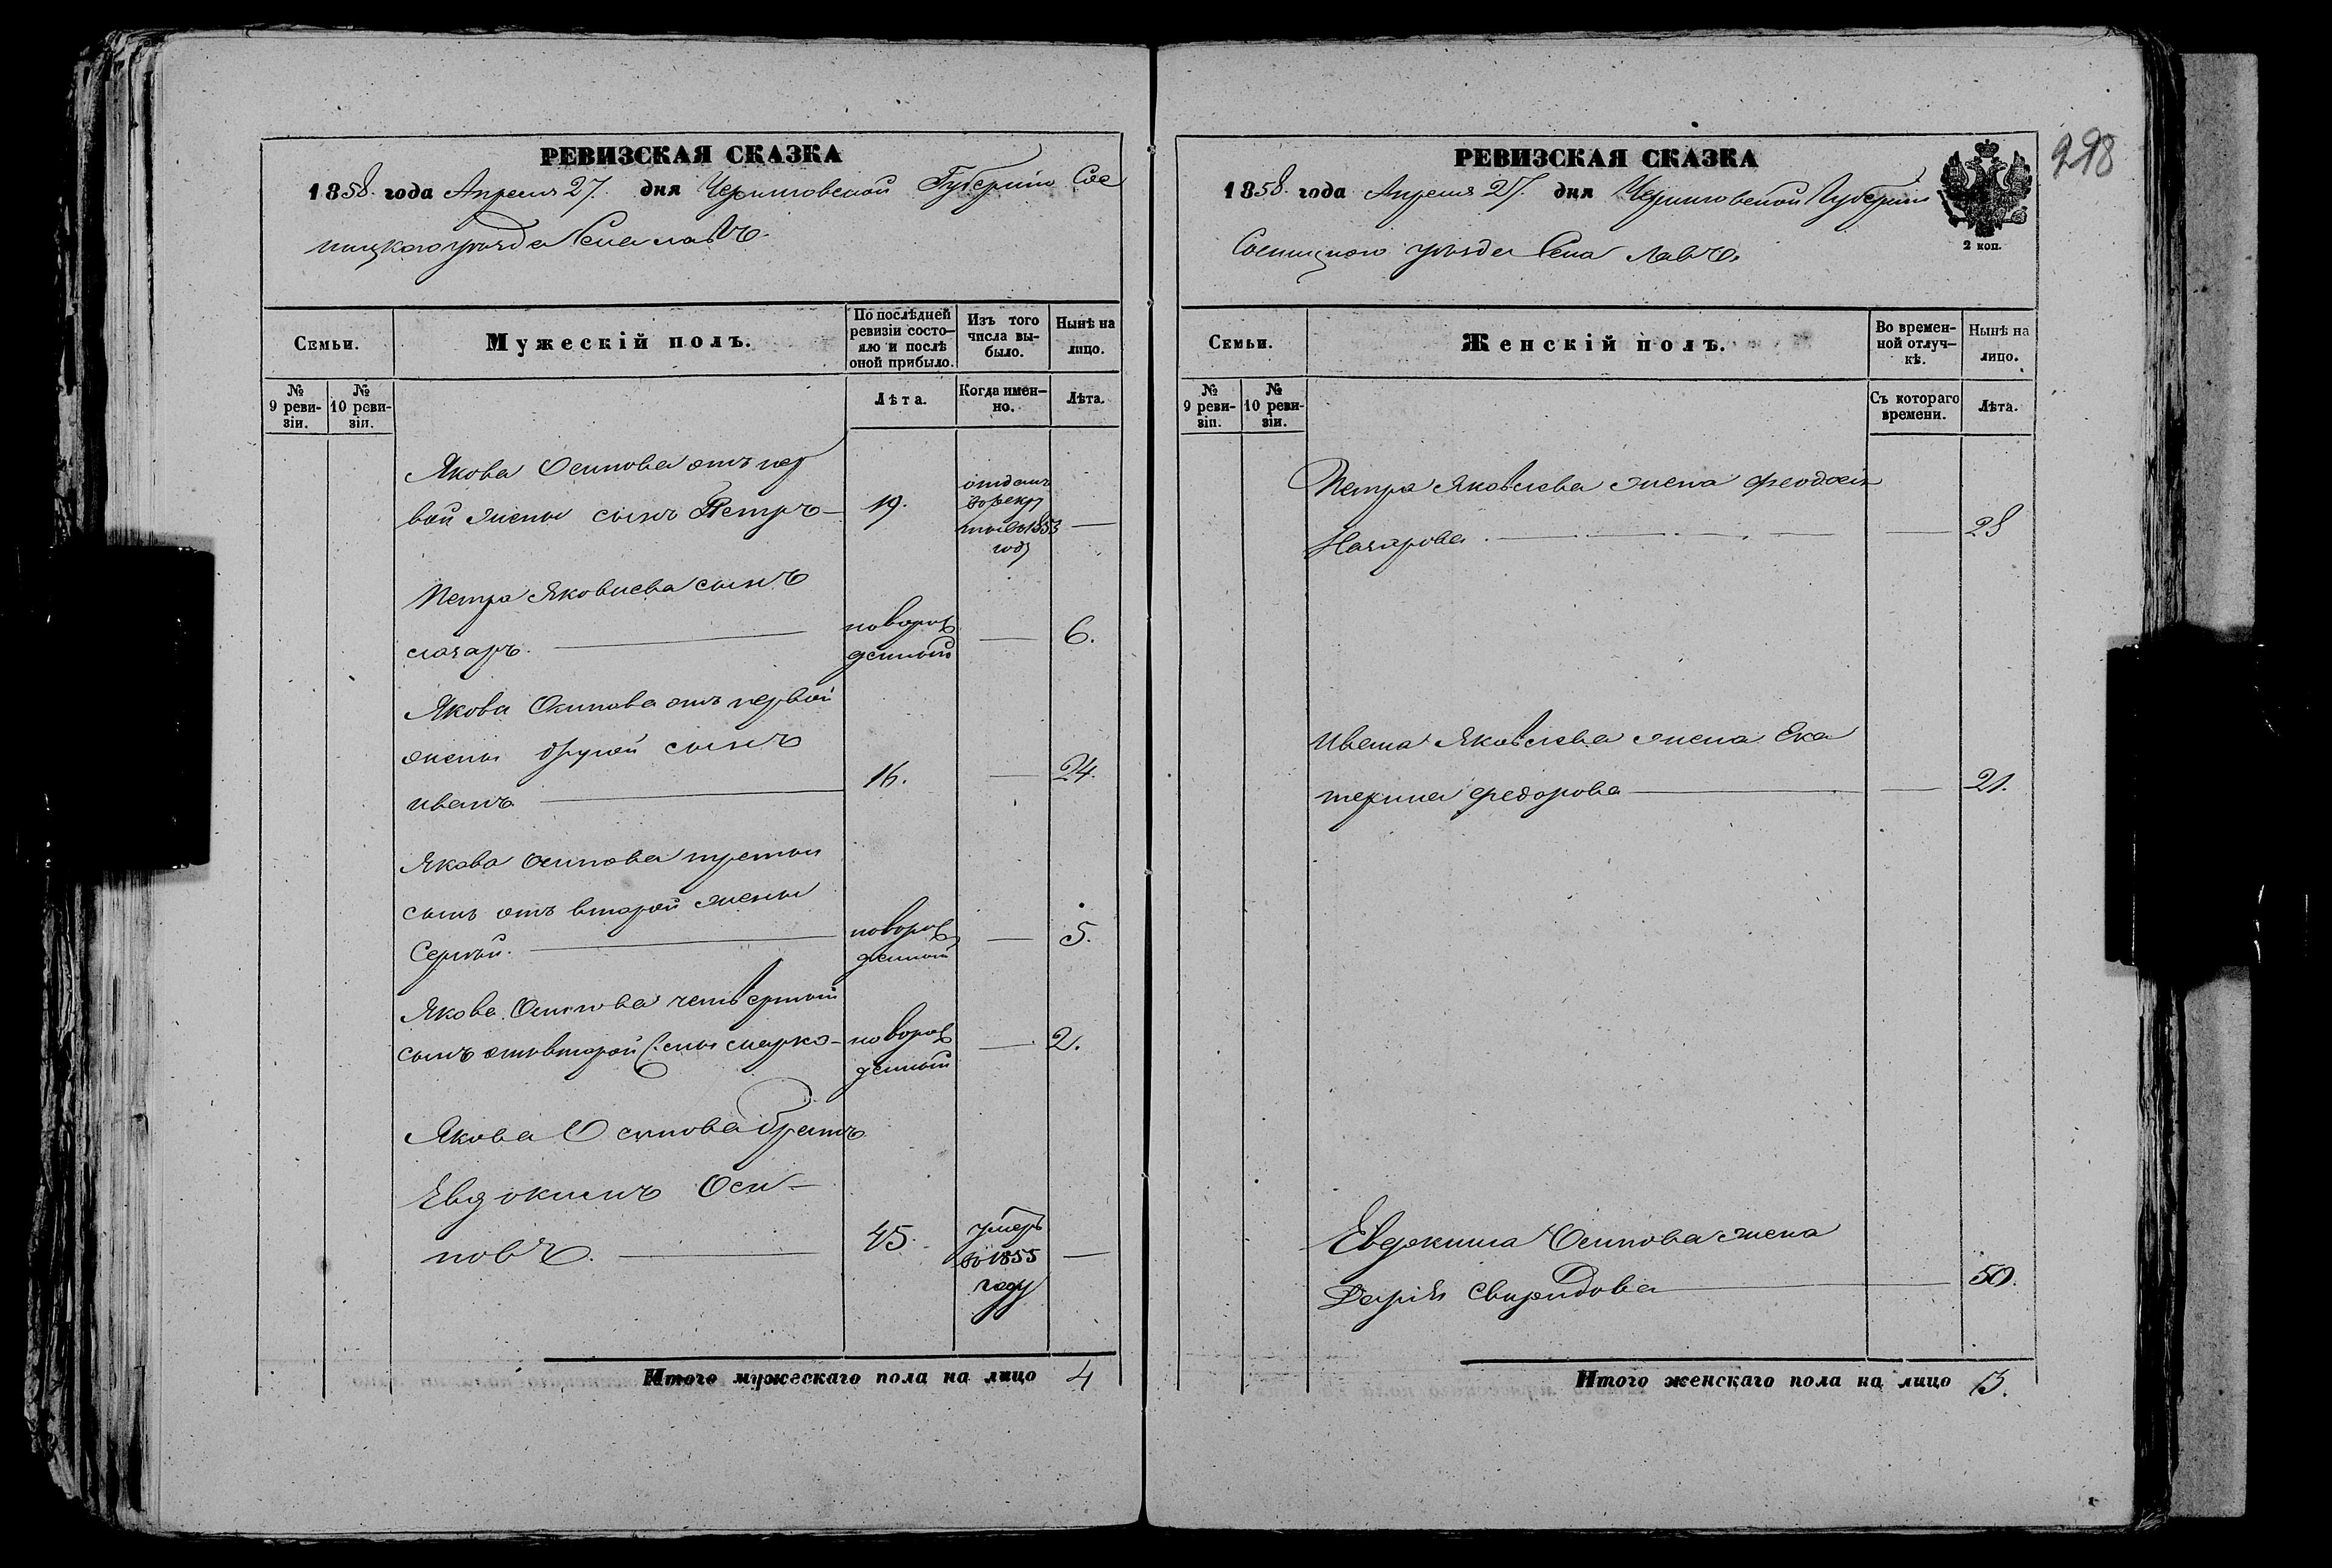 РЕВИЗСКАЯ СКАЗКА
1858 года Апреля 27. дня Черниговской Губерніи Сос
ницкого уѣзда Села Лавъ.
Семьи.
Мужескій полъ.
По послѣдней
ревизіи состо-
яло и послѣ
оной прибыло.
Изъ того
числа вы-
было.
Нынѣ на
лицо.
№
9 реви-
зіи.
№
10 реви-
зіи.
Лѣта.
Когда имен-
но.
Лѣта.
Якова Осипова отъ пер
вой жены сынъ Петръ — 19. —
отданъ
въ рекру
ты въ 1853
году
Петра Яковлева сынъ
назаръ. — новорож
денный — 6.
Якова Осипова отъ первой
жены другой сынъ
иванъ — 16. — 24.
Якова Осипова третьи
сынъ отъ второй жены
Сергѣй. — новорож
денный — 5.
Якова Осипова четвертый
сынъ отъ второй жены марко — новорож
денный — 2.
Якова Осипова братъ
Евдокимъ Оси-
повъ. — 45. —
умеръ
въ 1855
году
Итого мужескаго пола на лицо 4
РЕВИЗСКАЯ СКАЗКА
298
1858 года Апреля 27. дня Черниговской Губерніи
Сосницкого уѣзда Села Лавъ.
2 коп.
Семьи.
Женскій полъ.
Во времен-
ной отлуч-
кѣ.
Нынѣ на
лицо.
№
9 реви-
зіи.
№
10 реви-
зіи.
Съ котораго
времени.
Лѣта.
Петра Яковлева жена феодосія
Назарова. — 28
Ивана Яковлева жена Ека
терина федорова — 21.
Евдокима Осипова жена
Дарія Свиридова — 50.
Итого женскаго пола на лицо 3.